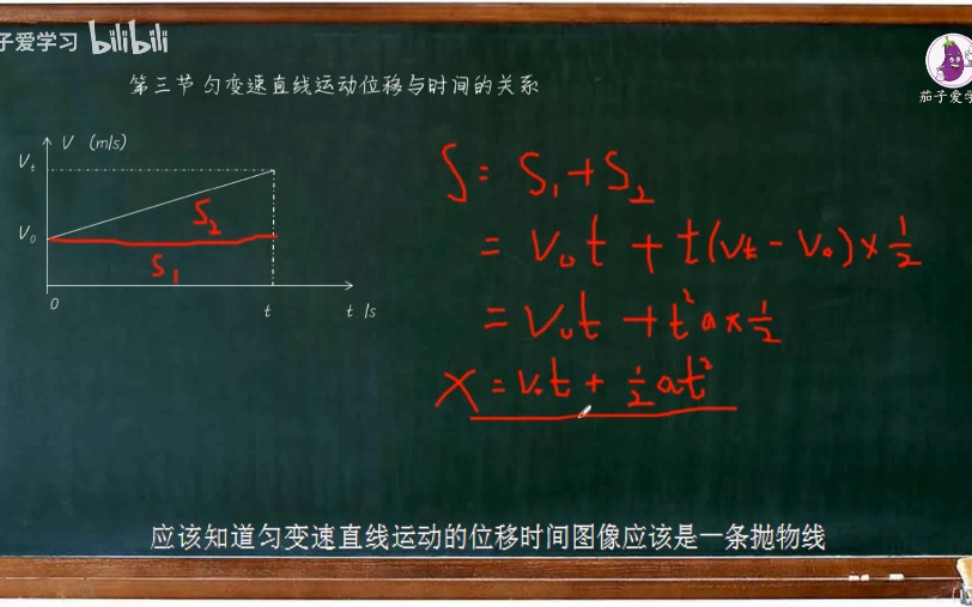 子爱学习 bilibili
茄子爱学
第三节 匀变速直线运动位移与时间的关系
V (m/s)
Vt
V0
S2
S1
0
t
t /s
S = S1 + S2
= V0t + t(Vt - V0) × 1/2
= V0t + t²a × 1/2
X = V0t + 1/2 at²
应该知道匀变速直线运动的位移时间图像应该是一条抛物线